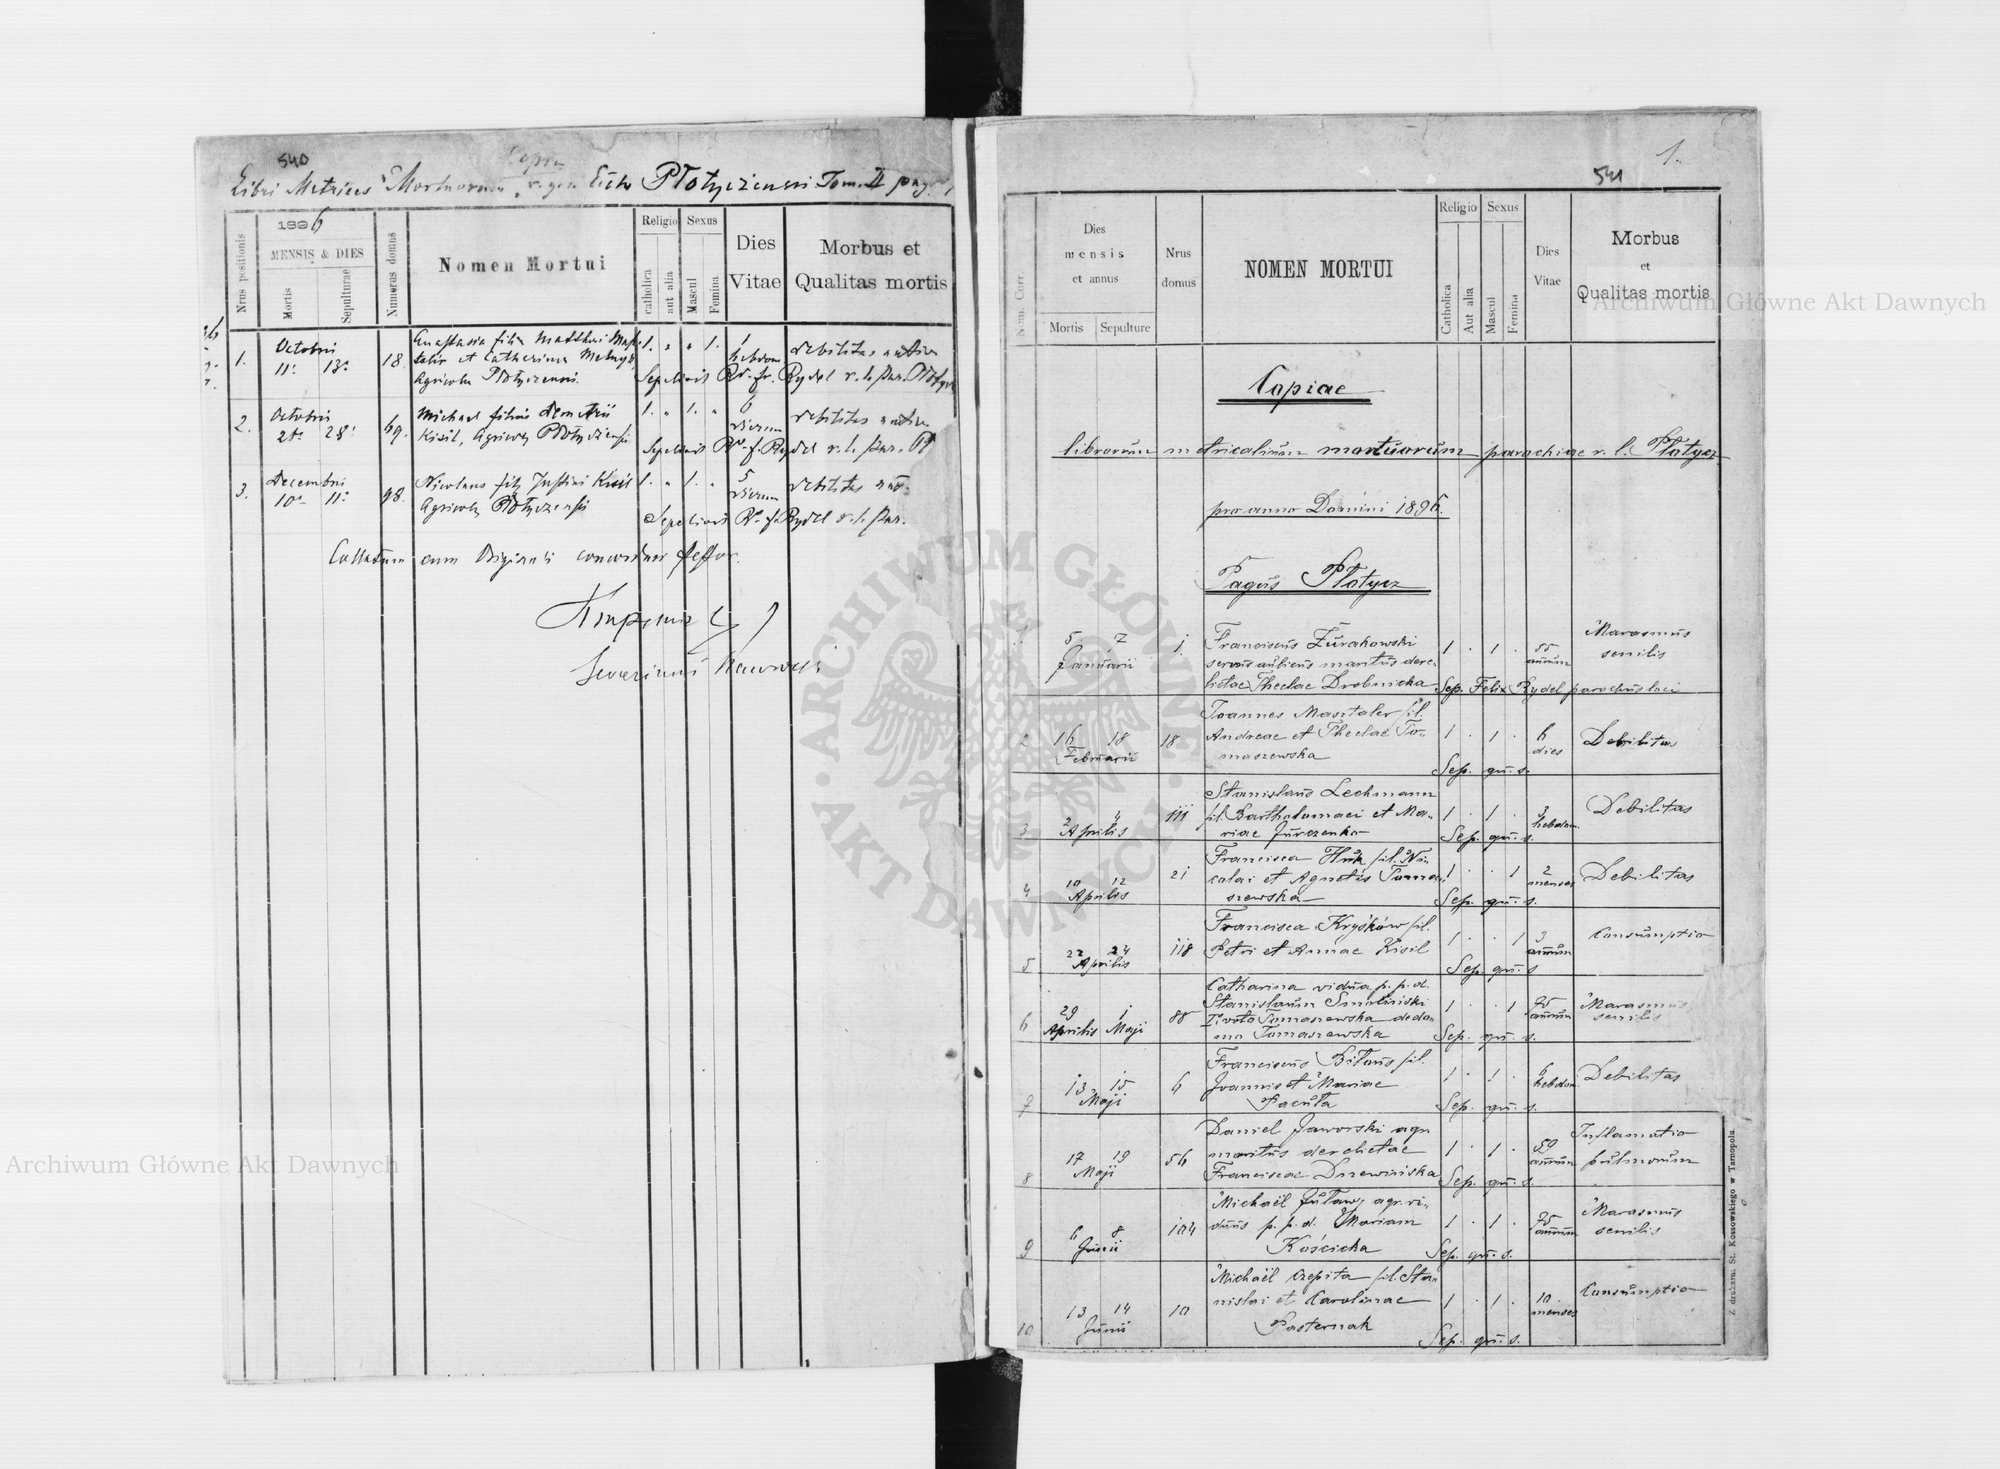 540
Copia
Libri Metrices Mortuorum Eccle Płotyczensi Tom. II pag.
1896
Nrus positionis
MENSIS & DIES
Mortis
Sepulturae
Numerus domus
Nomen Mortui
Religio
catholica
aut alia
Sexus
Mascul
Femina
Dies
Vitae
Morbus et
Qualitas mortis
1.
Octobris
11. 13.
18.
Anastasia filia Matthaei
et Catharina Melnyk
Agricola Płotyczensi
1. " " 1.
1
hebdom
debilitas nativa
Sepelivit Rd. fr. Rydel r. l. par. Płotycz
2.
Octobris
28.
69.
Michael filius Demetrii
Kisil, Agricola Płotyczensi
1. " 1. "
6
dierum
debilitas nativa
Sepelivit Rd. f. Rydel r. l. par. Pł
3.
Decembri
10. 11.
98.
Nicolaus fil Justini Kisil
Agricola Płotyczensi
1. " 1. "
5
dierum
debilitas nat.
Sepelivit Rd. f. Rydel r. l. par.
Collatum cum Originali concordare testor.
Severinus
1.
541
Num. Curr.
Dies
mensis
et annus
Mortis
Sepulture
Nrus
domus
NOMEN MORTUI
Religio
Catholica
Aut alia
Sexus
Mascul
Femina
Dies
Vitae
Morbus
et
Qualitas mortis
Copiae
librorum metricalium mortuorum parochiae r. l. Płotycz
pro anno Domini 1896.
Pagus Płotycz
1
5 7
Januarii
1
Franciscus Żurakowski
servus aulicus maritus dere-
lictae Theclae Drobnicka
1 . 1 .
55
annum
Marasmus
senilis
Sep. Felix Rydel parochus loci
2
16 18
Februarii
18
Joannes Masztaler fil.
Andreae et Theclae To-
maszewska
1 . 1 .
6
dies
Debilitas
Sep. qu. s.
3
2 4
Aprilis
111
Stanislaus Lechmann
fil. Bartholomaei et Ma-
riae Jurczenko
1 . 1 .
3
hebdom.
Debilitas
Sep. qu. s.
4
10 12
Aprilis
21
Francisca Huk fil. Ni-
colai et Agnetis Toma-
szewska
1 . . 1
2
menses
Debilitas
Sep. qu. s.
5
22 24
Aprilis
118
Francisca Kryśków fil.
Petri et Annae Kisil
1 . . 1
3
annum
Consumptio
Sep. qu. s
6
29 1
Aprilis Maji
88
Catharina vidua p. p. d.
Stanislaum Smoliński
I voto Tomaszewska de do-
mo Tomaszewska
1 . . 1
75
annum
Marasmus
senilis
Sep. qu. s.
7
13 15
Maji
6
Franciscus Bitaus fil.
Joannis et Mariae
Pacuła
1 . 1 .
6
hebdom.
Debilitas
Sep. qu. s.
8
17 19
Maji
56
Daniel Jaworski agr.
maritus derelictae
Franciscae Drzewińska
1 . 1 .
59
annum
Inflamatio
pulmonum
Sep. qu. s.
9
6 8
Junii
104
Michaël Juław agr. vi-
duus p. p. d. Mariam
Kościcka
1 . 1 .
75
annum
Marasmus
senilis
Sep. qu. s.
10
13 14
Junii
10
Michaël Czepita fil. Sta-
nislai et Carolinae
Pasternak
1 . 1 .
10
menses
Consumptio
Sep. qu. s.
Z drukarni St. Kossowskiego w Tarnopolu.
ARCHIWUM GŁÓWNE AKT DAWNYCH
Archiwum Główne Akt Dawnych
Archiwum Główne Akt Dawnych